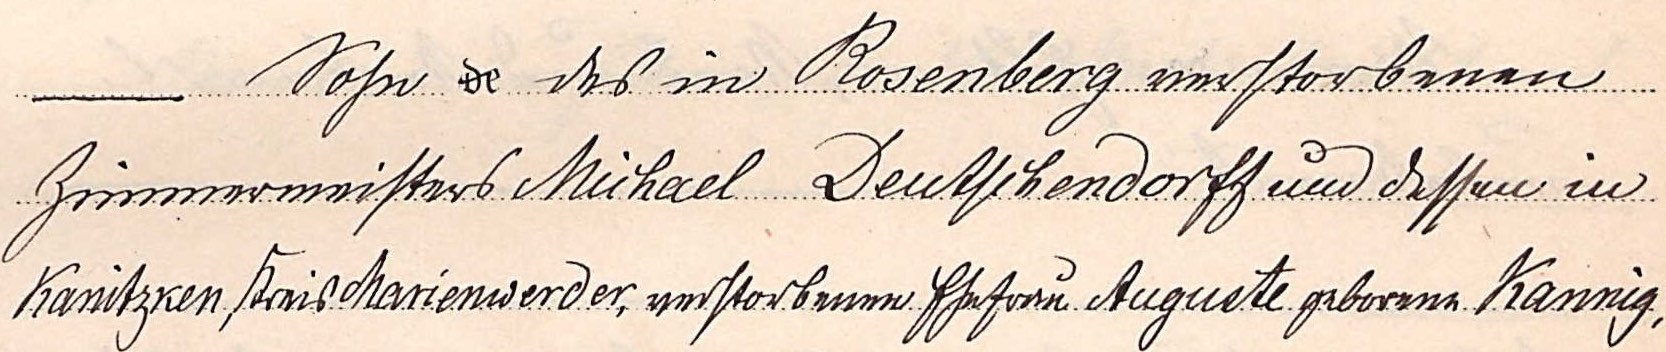 Sohn de des in Rosenberg verstorbenen
Zimmermeisters Michael Deutschendorff und dessen in
Kanitzken, Kreis Marienwerder, verstorbenen Ehefrau Auguste geborene Kannig,